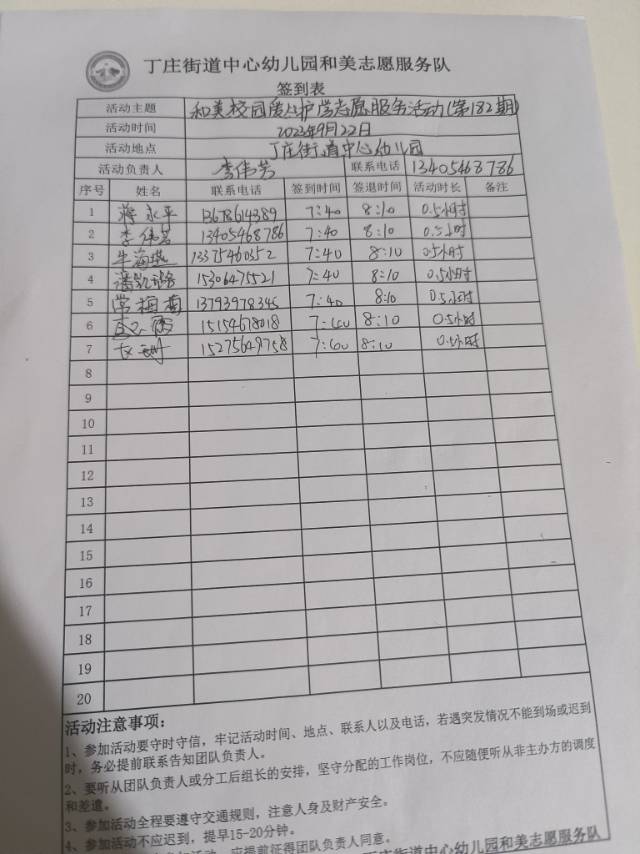 丁庄街道中心幼儿园和美志愿服务队
签到表
活动主题 和美校园爱心护学志愿服务活动(第182期)
活动时间 2023年9月22日
活动地点 丁庄街道中心幼儿园
活动负责人 李伟芳 联系电话 13405468786
序号 姓名 联系电话 签到时间 签退时间 活动时长 备注
1 蒋永平 13678614389 7:40 8:10 0.5小时
2 李伟芳 13405468786 7:40 8:10 0.5小时
3 牛海燕 13375460352 7:40 8:10 0.5小时
4 15306475521 7:40 8:10 0.5小时
5 常梅 13793978346 7:40 8:10 0.5小时
6 15154678018 7:40 8:10 0.5小时
7 15275649758 7:40 8:10 0.5小时
8
9
10
11
12
13
14
15
16
17
18
19
20
活动注意事项:
1、参加活动要守时守信，牢记活动时间、地点、联系人以及电话，若遇突发情况不能到场或迟到
时，务必提前联系告知团队负责人。
2、要听从团队负责人或分工后组长的安排，坚守分配的工作岗位，不应随便听从非主办方的调度
和差遣。
3、参加活动全程要遵守交通规则，注意人身及财产安全。
4、参加活动不应迟到，提早15-20分钟。
应提前征得团队负责人同意。
丁庄街道中心幼儿园和美志愿服务队